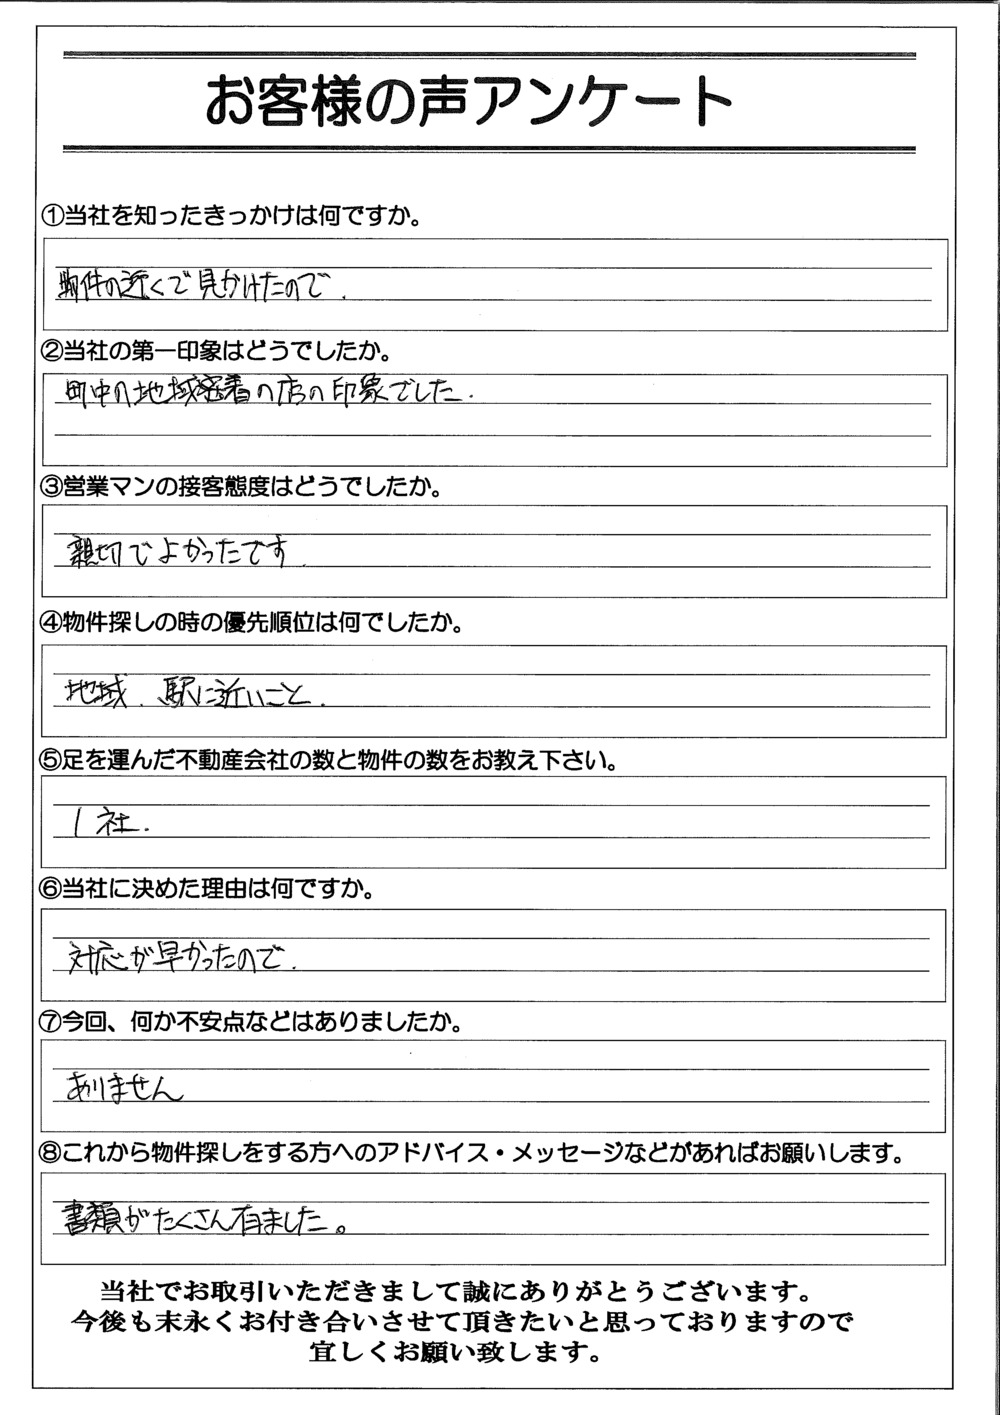 お客様の声アンケート
①当社を知ったきっかけは何ですか。
物件の近くで見かけたので.
②当社の第一印象はどうでしたか。
町中の地域密着の店の印象でした.
③営業マンの接客態度はどうでしたか。
親切でよかったです.
④物件探しの時の優先順位は何でしたか。
地域. 駅に近いこと.
⑤足を運んだ不動産会社の数と物件の数をお教え下さい。
1社.
⑥当社に決めた理由は何ですか。
対応が早かったので.
⑦今回、何か不安点などはありましたか。
ありません
⑧これから物件探しをする方へのアドバイス・メッセージなどがあればお願いします。
書類がたくさん有ました。
当社でお取引いただきまして誠にありがとうございます。
今後も末永くお付き合いさせて頂きたいと思っておりますので
宜しくお願い致します。